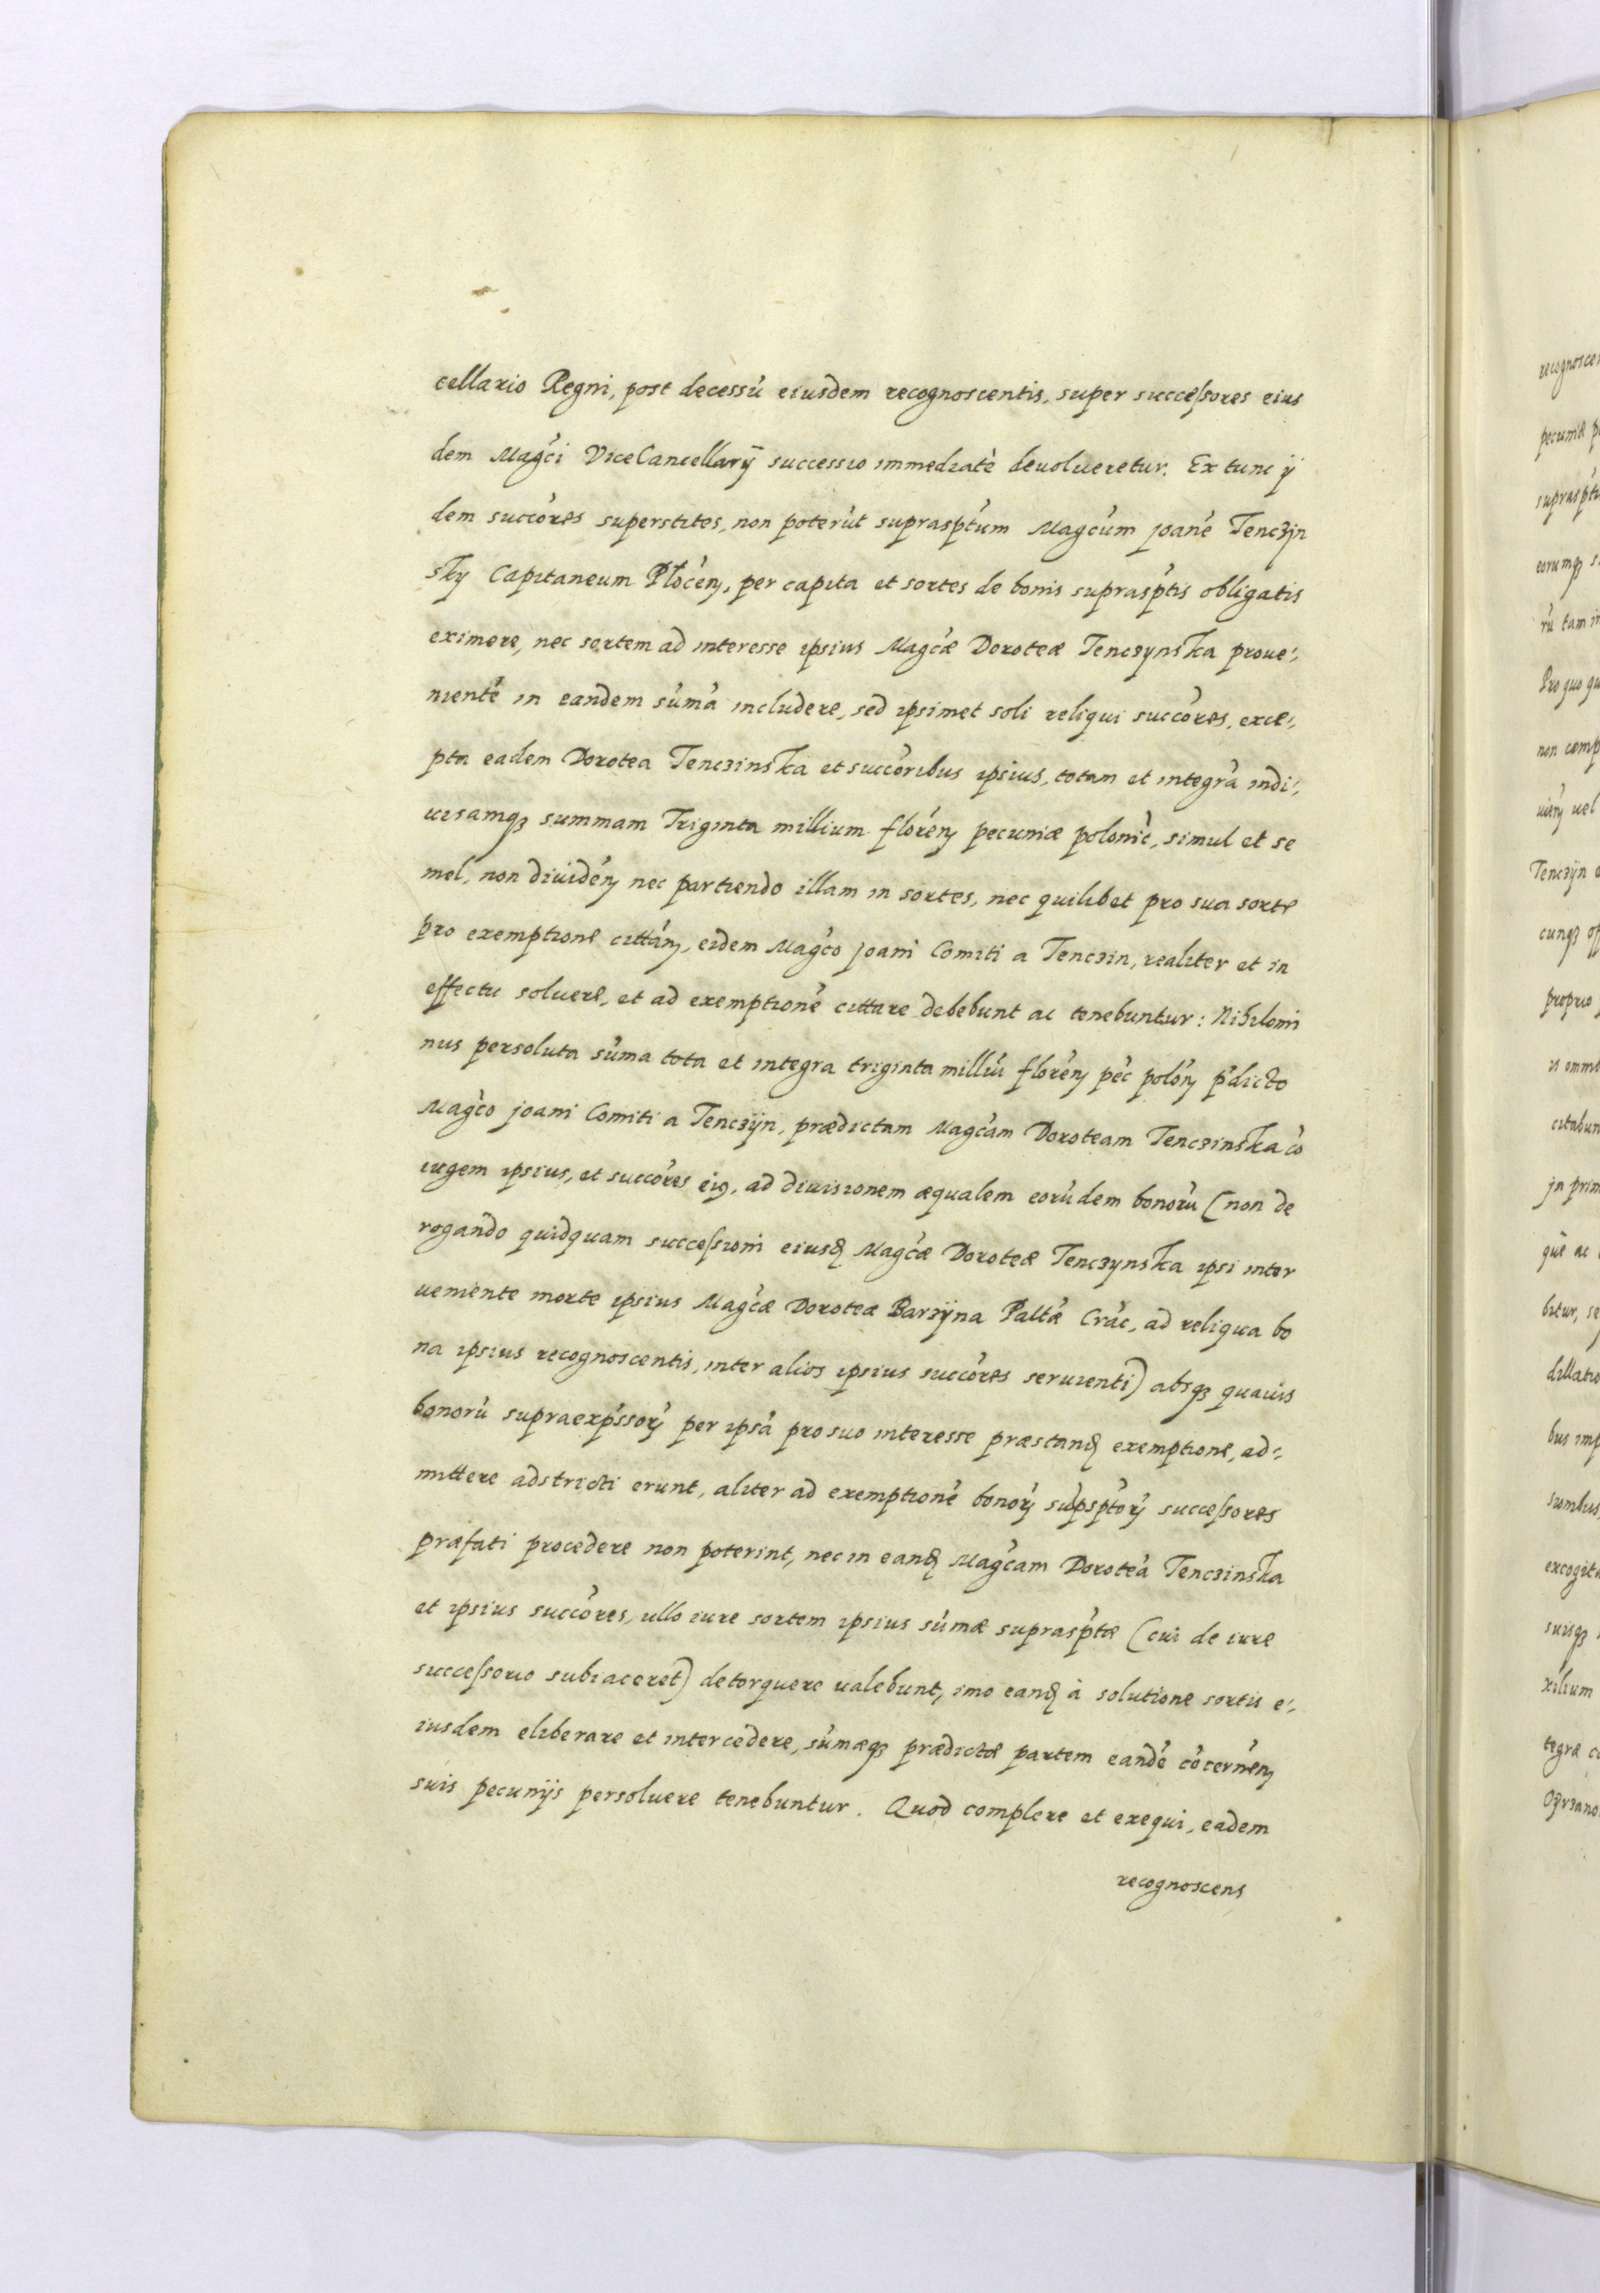 cellario Regni, post decessũ eiusdem recognoscentis, super successores eius
dem Magci ViceCancellarÿ successio immediatè deuolueretur. Ex tunc ÿ
dem succores superstites, non poterũt suprasptum Magcum Joanẽ Tenczÿn
sky Capitaneum Płoceñ, per capita et sortes de bonis suprasptis obligatis
eximere, nec sortem ad interesse ipsius Magcæ Doroteæ Tenczynska proue-,
nientẽ in eandem sũmã includere, sed ipsimet soli reliqui succores, exce-,
pta eadem Dorotea Tenczinska et succoribus ipsius, totam et integrã indi-,
uisamqз summam Triginta millium floreñ pecuniæ polonic, simul et se
mel, non diuideñ nec partiendo illam in sortes, nec quilibet pro sua sorte
pro exemptione cittañ, eidem Magco Joani Comiti a Tenczin, realiter et in
effectu soluere, et ad exemptionẽ cittare debebunt ac tenebuntur: Nihilomi
nus persoluta sũma tota et integra triginta milliũ floreñ pec poloñ pdicto
Magco Joani Comiti a Tenczÿn, prædictam Magcam Doroteam Tenczinska cõ
iugem ipsius, et succores eiꝯ, ad diuisionem æqualem eorũdem bonorũ (non de
rogando quidquam successioni eiusꝺ Magcæ Doroteæ Tenczynska ipsi inter
ueniente morte ipsius Magcæ Doroteæ Barzÿna Paltæ Crac, ad reliqua bo
na ipsius recognoscentis, inter alios ipsius succores seruienti) absqз quauis
bonorũ supraexpssorꝝ per ipsã pro suo interesse præstanꝺ exemptione, ad-,
mittere adstricti erunt, aliter ad exemptionẽ bonorꝝ supsptorꝝ successores
præfati procedere non poterint, nec in eanꝺ Magcam Doroteã Tenczinska
et ipsius succores, ullo iure sortem ipsius sũmæ suprasptæ (cui de iure
successorio subiaceret) detorquere ualebunt, imo eanꝺ à solutione sortis e-,
iusdem eliberare et intercedere, sũmæqз prædictæ partem eandẽ cõcerneñ
suis pecunijs persoluere tenebuntur. Quod complere et exequi, eadem
recognoscens